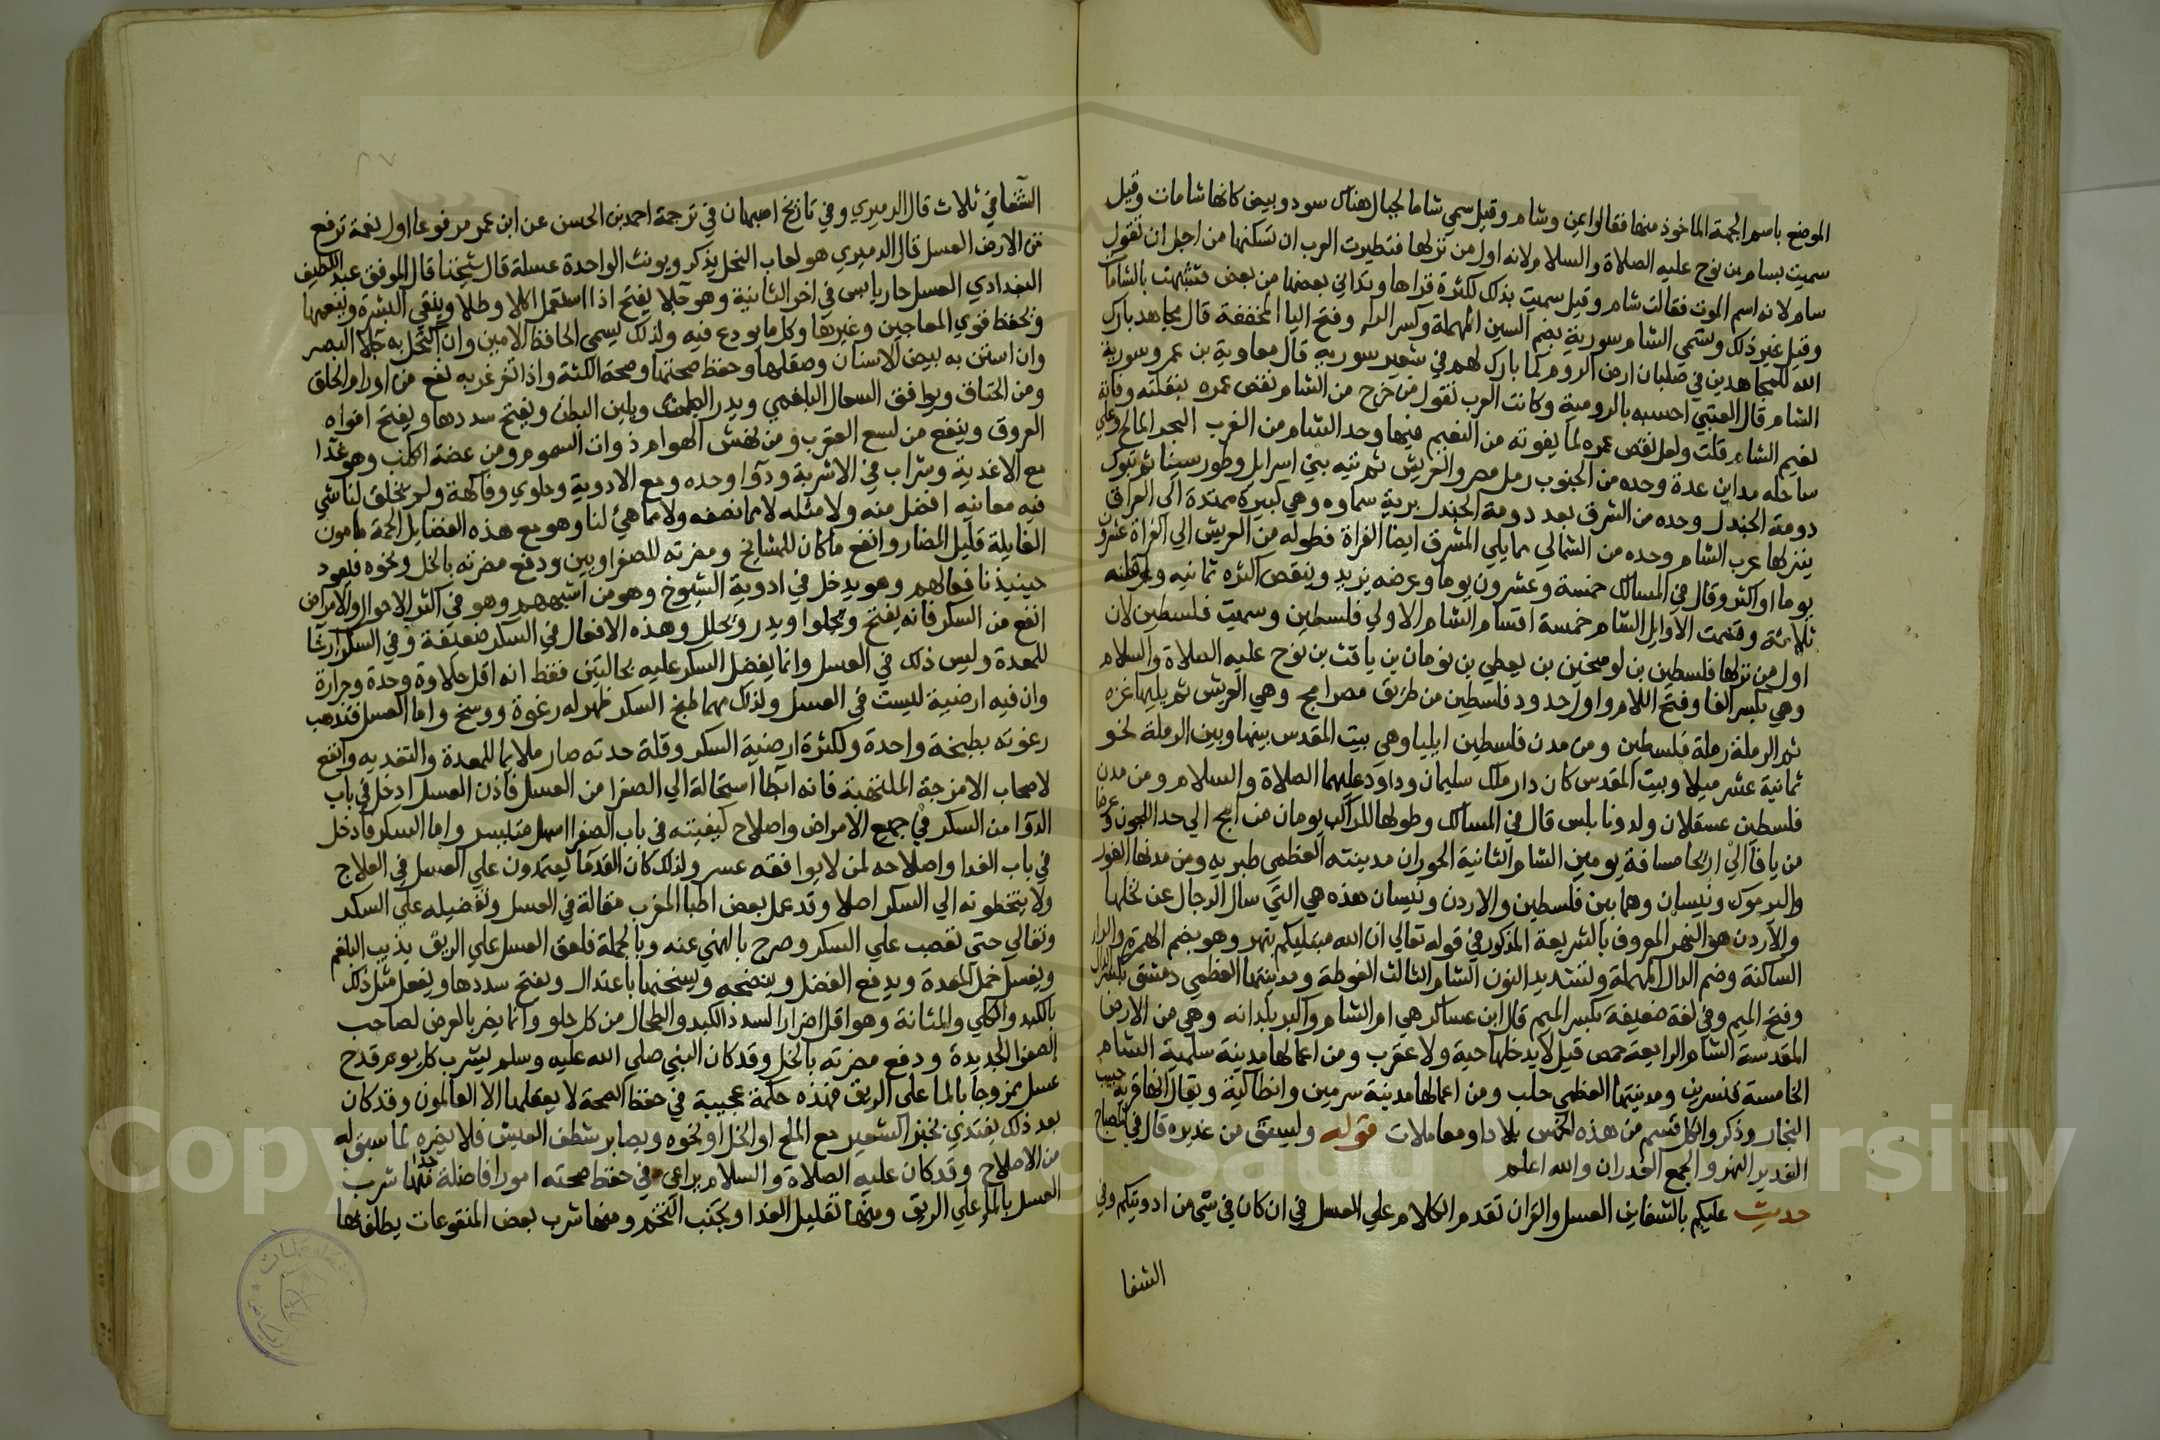 الموضع باسم الجمة الماخوذ منها فقالوا يمن وشام وقيل سمي شاما لجبال هناك سود وبيض كانها شامات وقيل
سميت بسام بن نوح عليه الصلاة والسلام لانه اول من نزلها فتطيرت العرب ان تسكنها من اجل ان تقول
سام لانه اسم الموت فقالت شام وقيل سميت بذلك لكثرة قراها وتداني بعضها من بعض فشبهت بالشامات
وقيل غير ذلك وتسمي الشام سورية بضم السين المهملة وكسر الراء وفتح اليا المخففة قال مجاهد بارك
الله للمجاهدين في صلبان ارض الروم كما بارك لهم في شعير سورية قال معاوية بن عمر وسورية
الشام قال العتبي احسبه بالرومية وكانت العرب تقول من خرج من الشام نقص عمره بنقلته وفاته
نعيم الشام قلت ولعل نقص عمره لما يفوته من النعيم فيها وحد الشام من الغرب البحر المالح وعلي
ساحله مداين عدة وحده من الجنوب رمل مصر والعريش ثم تيه بني اسرايل وطور سينا ثم تبوك
دومة الجندل وحده من الشرق بعد دومة الجندل برية سماوه وهي كبيرة ممتدة الي العراق
ينزلها عرب الشام وحده من الشمالي مما يلي المشرق ايضا الفراة فطوله من العريش الي الفراة عشرون
يوما او اكثر وقال في المسالك خمسة وعشرون يوما وعرضه يزيد وينقص اكثره ثمانيه واقله
ثلاثة وقسمت الاوايل الشام خمسة اقسام الشام الاولي فلسطين وسميت فلسطين لان
اول من نزلها فلسطين بن لوسخين بن يعطي بن نومان بن يافث بن نوح عليه الصلاة والسلام
وهي بكسر الفا وفتح اللام واول حدود فلسطين من طريق مصر امج وهي العريش ثم يليها غزه
ثم الرملة رملة فلسطين ومن مدن فلسطين ايليا وهي بيت المقدس بينها وبين الرملة نحو
ثمانية عشر ميلا وبيت المقدس كان دار ملك سليمان وداود عليهما الصلاة والسلام ومن مدن
فلسطين عسقلان ولد ونابلس قال في المسالك وطولها للراكب يومان من امج الي حد اللجون وعرضا
من يافا الي اريحا مسافة يومين الشام الثانية الحوران مدينته العظمي طبريه ومن مدنها الغور
واليرموك وبيسان وهما بين فلسطين والاردن وبيسان هذه هي التي سال الرجال عن نخلها
والاردن هو النهر المعروف بالشريعة المذكور في قوله تعالي ان الله مبتليكم بنهر وهو بضم الهمزة والراء
الساكنة وضم الدال المهملة وتشديد النون الشام الثالث الغوطة ومدينتها العظمي دمشق بكسر الدال
وفتح الميم وفي لغة ضعيفة بكسر الميم قال ابن عساكر هي ام الشام واكبر بلدانه وهي من الارض
المقدسة الشام الرابعة حمص قيل لا يدخلها حية ولا عقرب ومن اعمالها مدينة سلمية الشام
الخامسة قنسرين ومدينتها العظمي حلب ومن اعمالها مدينة سرمين وانطاكية ويقال انها قرية حبيب
النجار وذكروا لكل قسم من هذه الخمس بلادا ومعاملات قوله وليسق من غديره قال في المصباح
الغدير النهر والجمع الغدران والله اعلم
حديث عليكم بالشفاين العسل والقران تقدم الكلام علي العسل في ان كان في شي من ادويتكم وفي
الشفا
الشفا في ثلاث قال الدميري وفي تاريخ اصبهان في ترجمة احمد بن الحسن عن ابن عمر مرفوعا اول نعمة ترفع
من الارض العسل قال الدميري هو لعاب النحل يذكر ويونث الواحدة عسلة قال شيخنا قال الموفق عبد اللطيف
البغدادي العسل حار يابس في اخر الثانية وهو جلا يفتح اذا استعمل اكلا وطلا وينقي البشرة وينعمها
ويحفظ قوي المعاجين وغيرها وكل ما يودع فيه ولذلك يسمي الحافظ الامين وان اكتحل به جلا البصر
وان استن به بيض الاسنان وصقلها وحفظ صحتها وصحة اللثة واذا تغرغر به نفع من اورام الحلق
ومن الخناق ويوافق السعال البلغمي ويدر البول ويلين البطن ويفتح سددها ويفتح افواه
العروق وينفع من لسع العقرب ومن نهش الهوام ذوات السموم ومن عضة الكلب وهو غذا
مع الاغذية وشراب في الاشربة ودوا وحده ومع الادوية وحلوي وفاكهة ولم يخلق لنا شي
فيه معانيه افضل منه ولا مثله لا مما نصفه ولا مما هئ لنا وهو مع هذه الفضايل الجمة مامون
الغايلة قليل المضار وانفع ما كان للمشايخ ومضرته للصفراويين ودفع مضرته بالخل ونحوه فيعود
حينيذ نافعا لهم وهو يدخل في ادوية الشيوخ وهو من اشبههم وهو في اكثر الاحوال والامراض
انفع من السكر فانه يفتح ويجلوا ويدر ويحلل وهذه الافعال في السكر ضعيفة وفي السكر ارخا
للمعدة وليس ذلك في العسل وانما يفضل السكر عليه بحالتين فقط انه اقل حلاوة وحدة وحرارة
وان فيه ارضية ليست في العسل ولذلك مهما طبخ السكر ظهر له رغوة ووسخ واما العسل فتذهب
رغوته بطبخة واحدة ولكثرة ارضية السكر وقلة حدته صار ملايما للمعدة والتغديه وانفع
لاصحاب الامزجة الملتهبة فانه ابطا استحالة الي الصفرا من العسل فاذن العسل ادخل في باب
الدوا من السكر في جميع الامراض واصلاح كيفيته في باب الصفرا اسهل متيسر واما السكر فادخل
في باب الغدا واصلاحه لمن لا يوافقه عسر ولذلك كان القدما يعتمدون علي العسل في العلاج
ولا يتخطونه الي السكر اصلا وقد عمل بعض اطبا المغرب مقالة في العسل وتفضيله علي السكر
وتغالي حتي تعصب علي السكر وصرح بالنهي عنه وبالجملة فلعق العسل علي الريق يذيب البلغم
ويغسل خمل المعدة ويدفع الفضل وينضجه ويسخنها باعتدال ويفتح سددها ويفعل مثل ذلك
بالكبد والكلي والمثانة وهو اقل اضرارا لسدد الكبد والطحال من كل حلو وانما يضر بالعرض لصاحب
الصفرا الجديدة ودفع مضرته بالخل وقد كان النبي صلي الله عليه وسلم يشرب كل يوم قدح
عسل ممزوجا بالما علي الريق فهذه حكمة عجيبة في حفظ الصحة لا يعقلها الا العالمون وقد كان
بعد ذلك يغتدي بخبز الشعير مع الملح او الخل او نحوه ويصابر شظف العيش فلا يضره لما سبق له
من الاصلاح وقد كان عليه الصلاة والسلام يراعي في حفظ صحته امورا فاضلة جدا منها شرب
العسل بالماء علي الريق ومنها تقليل الغدا وتجنب التخم ومنها شرب بعض المنقوعات يطلف بها
Copyright © King Saud University